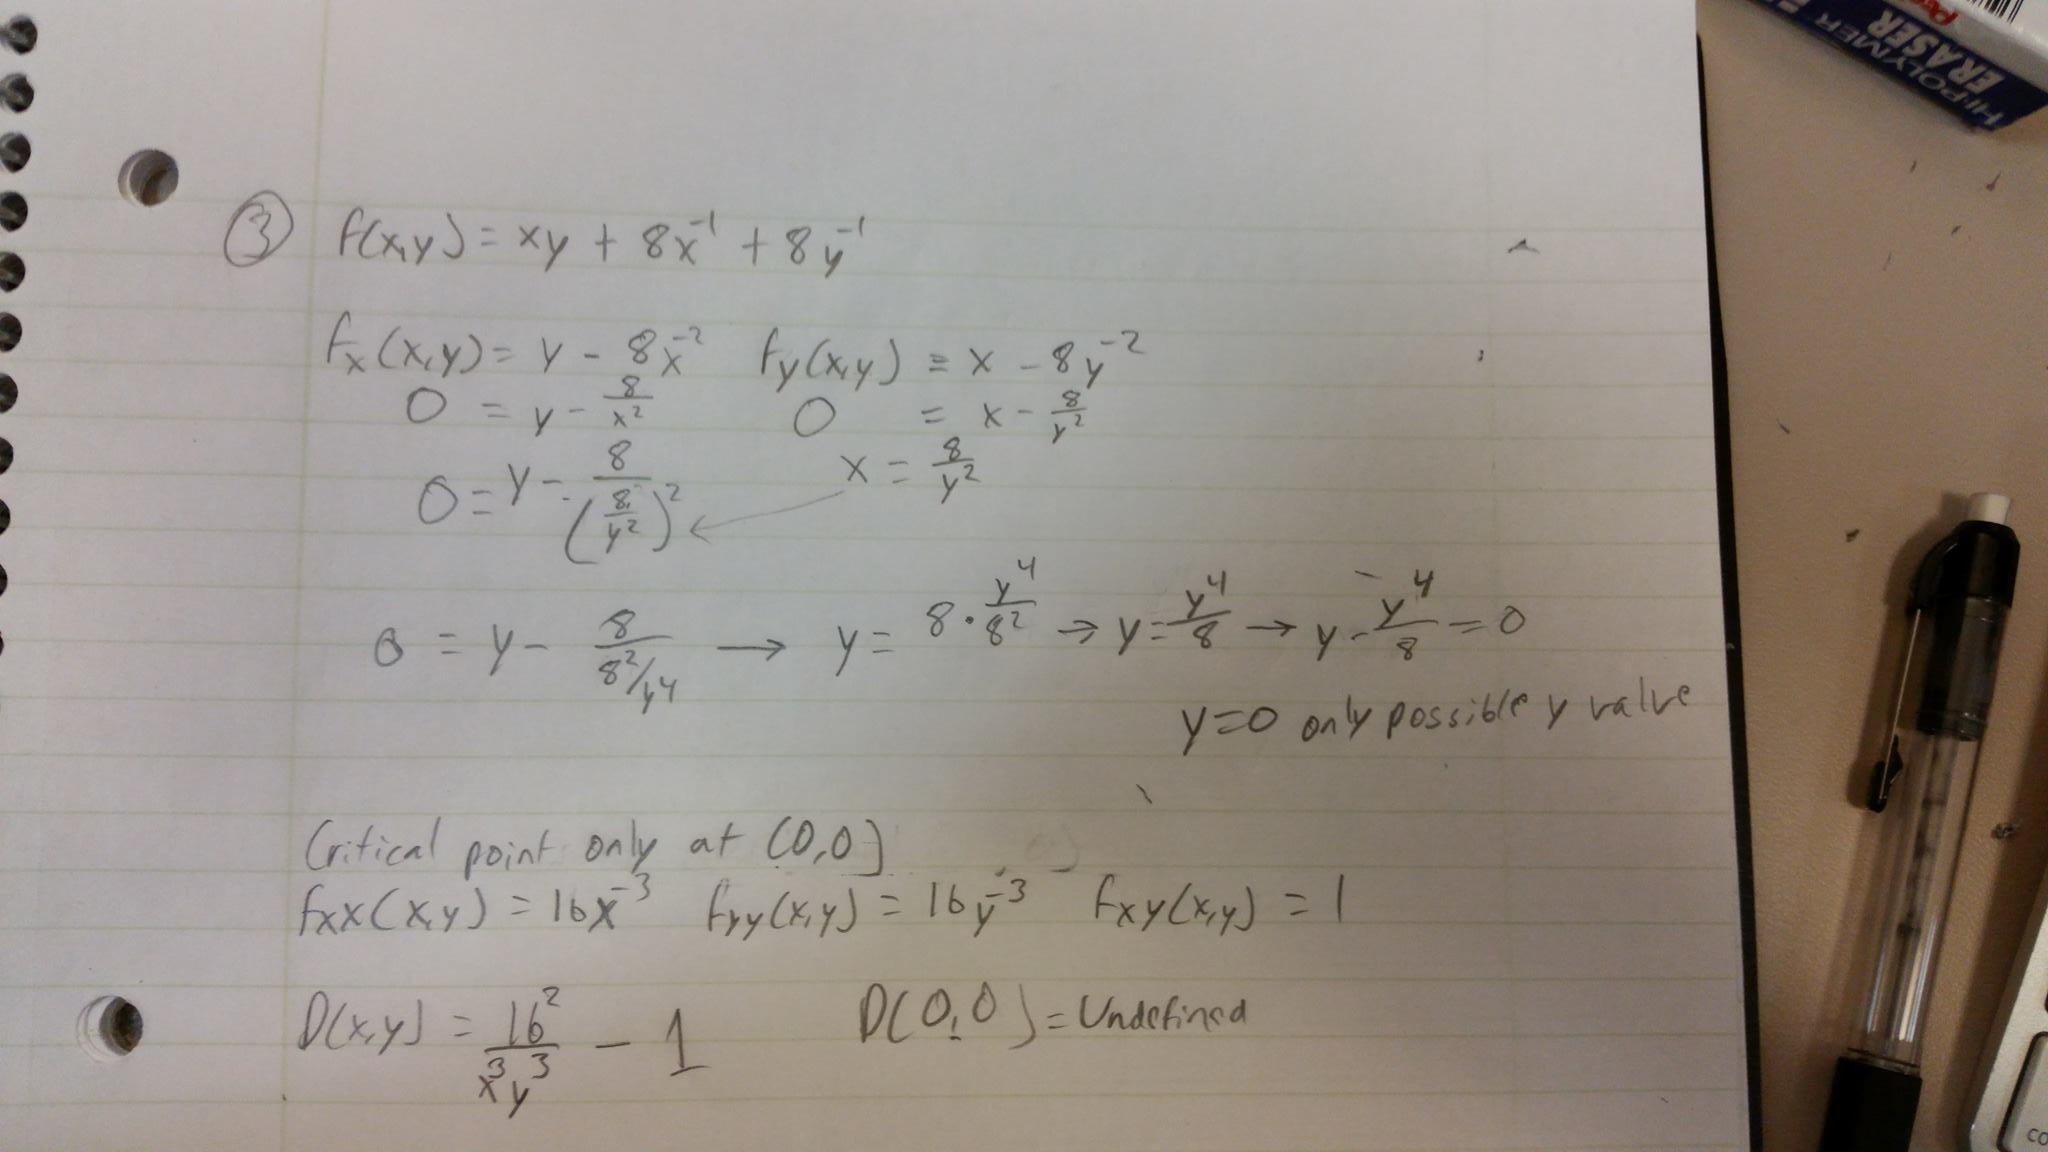 ③ f(x,y) = xy + 8x⁻¹ + 8y⁻¹
fₓ(x,y) = y - 8x⁻² f_y(x,y) = x - 8y⁻²
0 = y - 8/x² 0 = x - 8/y²
0 = y - 8/(8/y²)² ← x = 8/y²
0 = y - 8/(8²/y⁴) → y = 8 · y⁴/8² → y = y⁴/8 → y - y⁴/8 = 0
y=0 only possible y value
Critical point only at (0,0)
fxx(x,y) = 16x⁻³ fyy(x,y) = 16y⁻³ fxy(x,y) = 1
D(x,y) = 16²/x³y³ - 1 D(0,0) = Undefined
HI-POLYMER
ERASER